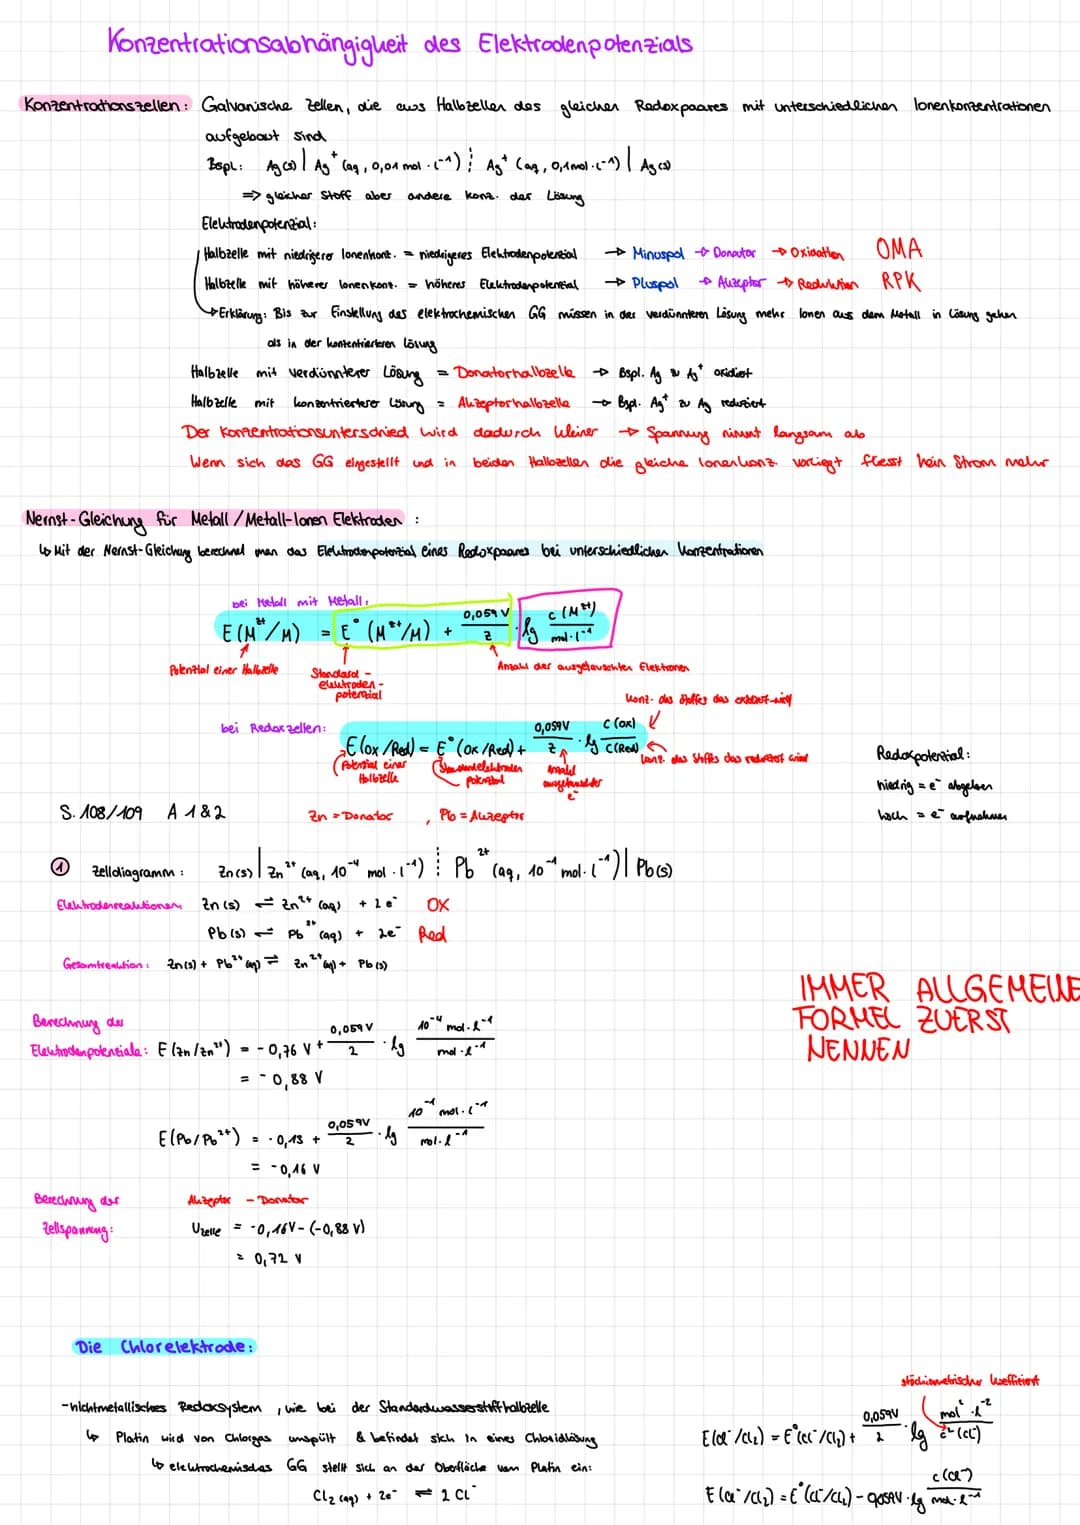 Konzentrationsabhängigkeit des Elektrodenpotenzials
Konzentrationszellen: Galvanische Zellen, die aus Halbzellen des gleichen Redoxpaares mit unterschiedlichen Ionenkonzentrationen
aufgebaut sind
Bspl: Ag(s) | Ag⁺ (aq, 0,01 mol·l⁻¹) ⋮ Ag⁺ (aq, 0,1 mol·l⁻¹) | Ag(s)
=> gleicher Stoff aber andere Konz. der Lösung
Elektrodenpotenzial:
Halbzelle mit niedrigerer Ionenkonz. = niedrigeres Elektrodenpotenzial → Minuspol → Donator → Oxidation OMA
Halbzelle mit höherer Ionenkonz. = höheres Elektrodenpotenzial → Pluspol → Akzeptor → Reduktion RPK
↳ Erklärung: Bis zur Einstellung des elektrochemischen GG müssen in der verdünnteren Lösung mehr Ionen aus dem Metall in Lösung gehen
als in der kontentrierteren Lösung
Halbzelle mit verdünnterer Lösung = Donatorhalbzelle → Bspl. Ag zu Ag⁺ oxidiert
Halbzelle mit konzentrierterer Lösung = Akzeptorhalbzelle → Bspl. Ag⁺ zu Ag reduziert
Der Konzentrationsunterschied wird dadurch kleiner → Spannung nimmt langsam ab
Wenn sich das GG eingestellt und in beiden Halbzellen die gleiche Ionenkonz. vorliegt fliesst kein Strom mehr
Nernst-Gleichung für Metall/Metall-Ionen Elektroden :
↳ Mit der Nernst-Gleichung berechnet man das Elektrodenpotenzial eines Redoxpaares bei unterschiedlichen Konzentrationen
bei Metall mit Metall:
E(Mᶻ⁺/M) = E°(Mᶻ⁺/M) + 0,059 V / z · lg c(Mᶻ⁺) / mol·l⁻¹
Potential einer Halbzelle
Standard-
elektroden-
potenzial
Anzahl der ausgetauschten Elektronen
Konz. des Stoffes das oxidiert wird
bei Redoxzellen:
E(Ox/Red) = E°(Ox/Red) + 0,059V / z · lg c(Ox) / c(Red)
Potential einer
Halbzelle
Standardelektroden
potenzial
Anzahl
ausgetauschter
e⁻
Konz. des Stoffes das reduziert wird
Redoxpotential:
niedrig = e⁻ abgeben
hoch = e⁻ aufnehmen
S. 108/109 A 1&2
Zn = Donator , Pb = Akzeptor
① Zelldiagramm: Zn(s) | Zn²⁺ (aq, 10⁻⁴ mol·l⁻¹) ⋮ Pb²⁺ (aq, 10⁻¹ mol·l⁻¹) | Pb(s)
Elektrodenreaktionen: Zn(s) ⇌ Zn²⁺(aq) + 2e⁻ OX
Pb(s) ⇌ Pb²⁺(aq) + 2e⁻ Red
Gesamtreaktion: Zn(s) + Pb²⁺(aq) ⇌ Zn²⁺(aq) + Pb(s)
IMMER ALLGEMEINE
FORMEL ZUERST
NENNEN
Berechnung der
Elektrodenpotenziale: E(Zn/Zn²⁺) = -0,76 V + 0,059 V / 2 · lg 10⁻⁴ mol·l⁻¹ / mol·l⁻¹
= -0,88 V
E(Pb/Pb²⁺) = -0,13 + 0,059V / 2 · lg 10⁻¹ mol·l⁻¹ / mol·l⁻¹
= -0,16 V
Berechnung der Akzeptor - Donator
Zellspannung: Uzelle = -0,16V - (-0,88 V)
= 0,72 V
Die Chlorelektrode:
stöchiometrischer Koeffizient
-nichtmetallisches Redoxsystem, wie bei der Standardwasserstoffhalbzelle
↳ Platin wird von Chlorgas umspült & befindet sich in einer Chloridlösung
↳ elektrochemisches GG stellt sich an der Oberfläche vom Platin ein:
Cl₂(aq) + 2e⁻ ⇌ 2 Cl⁻
E(Cl⁻/Cl₂) = E°(Cl⁻/Cl₂) + 0,059V / 2 · lg mol²·l⁻² / c²(Cl⁻)
E(Cl⁻/Cl₂) = E°(Cl⁻/Cl₂) - 0,059V · lg c(Cl⁻) / mol·l⁻¹